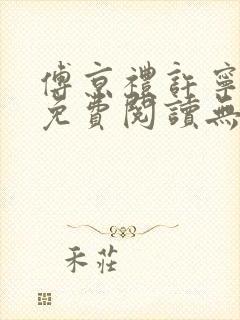 傅京禮許寧
免費閱讀無
禾莊